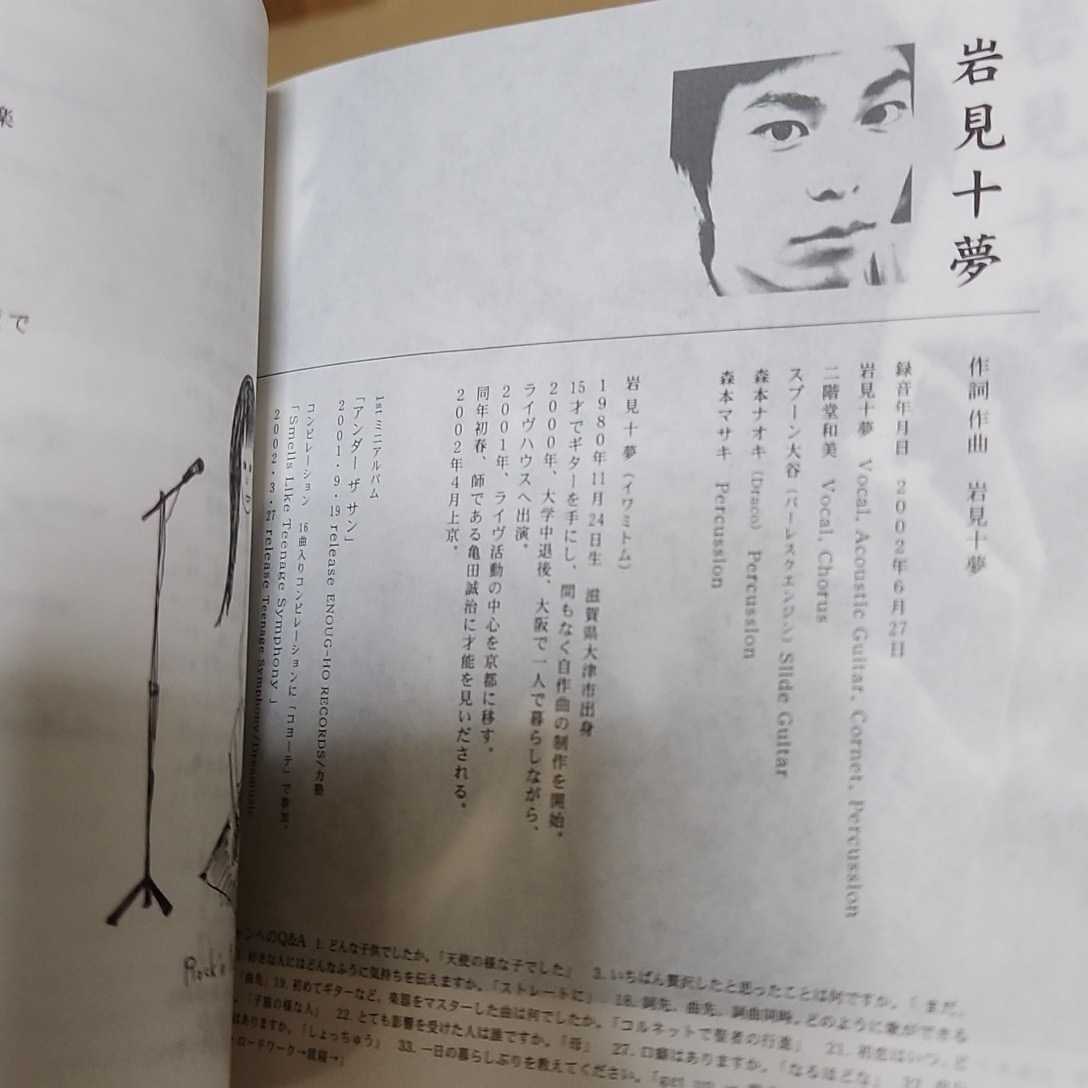 岩見十夢
作詞作曲 岩見十夢
録音年月日 2002年6月27日
岩見十夢 Vocal, Acoustic Guitar, Cornet, Percussion
二階堂和美 Vocal, Chorus
スプーン大谷 Slide Guitar
森本ナオキ (Draco) Percussion
森本マサキ Percussion
岩見十夢(イワミトム)
1980年11月24日生 滋賀県大津市出身
15才でギターを手にし、間もなく自作曲の制作を開始。
2000年、大学中退後、大阪で一人で暮らしながら、
ライヴハウスへ出演。
2001年、ライヴ活動の中心を京都に移す。
同年初春、師である亀田誠治に才能を見いだされる。
2002年4月上京。
1stミニアルバム
「アンダー ザ サン」
2001・9・19 release ENOUG-HO RECORDS/力塾
コンピレーション 16曲入りコンピレーションに「コヨーテ」で参加。
「Smells Like Teenage Symphony」
2002・3・27 release Teenage Symphony/
のQ&A 1. どんな子供でしたか。「天使の様な子でした」 3. いちばん贅沢したと思ったことは何ですか。「まだ、
好きな人にはどんなふうに気持ちを伝えますか。「ストレートに」 18. 詞先、曲先、詞曲同時。どのように歌ができる
「曲先」 19. 初めてギターなど、楽器をマスターした曲は何でしたか。「コルネットで聖者の行進」 21. 初恋はいつ、ど
「子猫の様な人」 22. とても影響を受けた人は誰ですか。「母」 27. 口癖はありますか。「なるほどな」
はありますか。「しょっちゅう」 33. 一日の暮らしぶりを教えてください。
ロードワーク→
楽
で
Rock'n